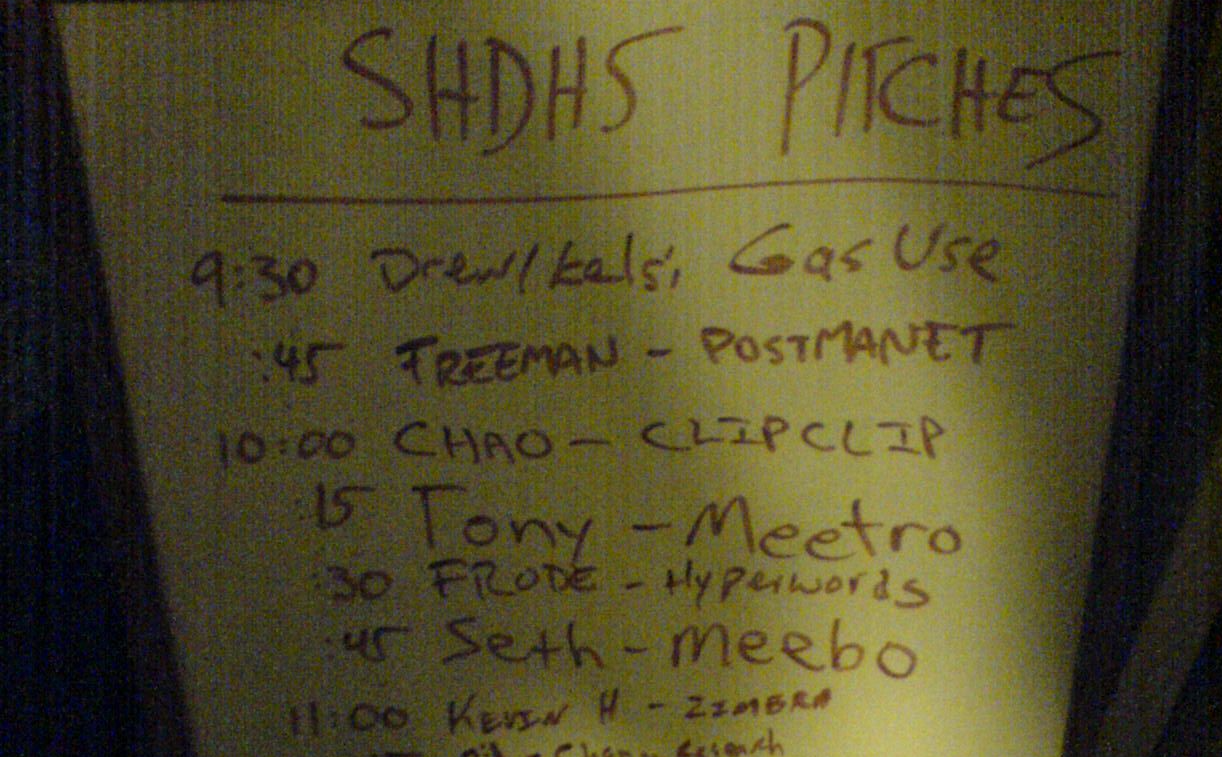 SHDH5 PITCHES
9:30 Drew/kels, Gas Use
:45 FREEMAN - POSTMANET
10:00 CHAO - CLIPCLIP
:15 Tony - Meetro
:30 FRODE - Hyperwords
:45 Seth - Meebo
11:00 KEVIN H - ZIMBRA
Research